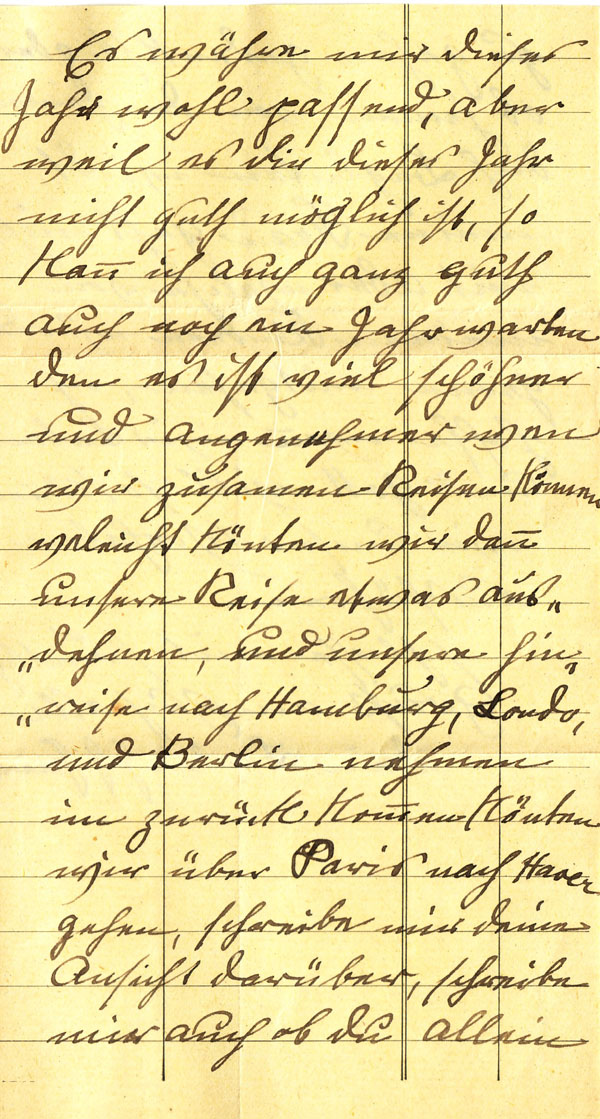 Es währe mir dieses
Jahr wohl passend, aber
weil es dir dieses Jahr
nicht guth möglich ist, so
kan̅ ich auch ganz guth
auch noch ein Jahr warten
den es ist viel schöhner
und angenehmer wen
wir zusamen Reisen können
veleicht könten wir dan̅
unsere Reise etwas aus„
„dehnen, und unsere hin„
„reise nach Hamburg, Londo,
und Berlin nehmen
im zurück kom̅en könten
wir über Paris nach Haver
gehen, schreibe mir deine
Ansicht darüber, schreibe
mir auch ob du allein